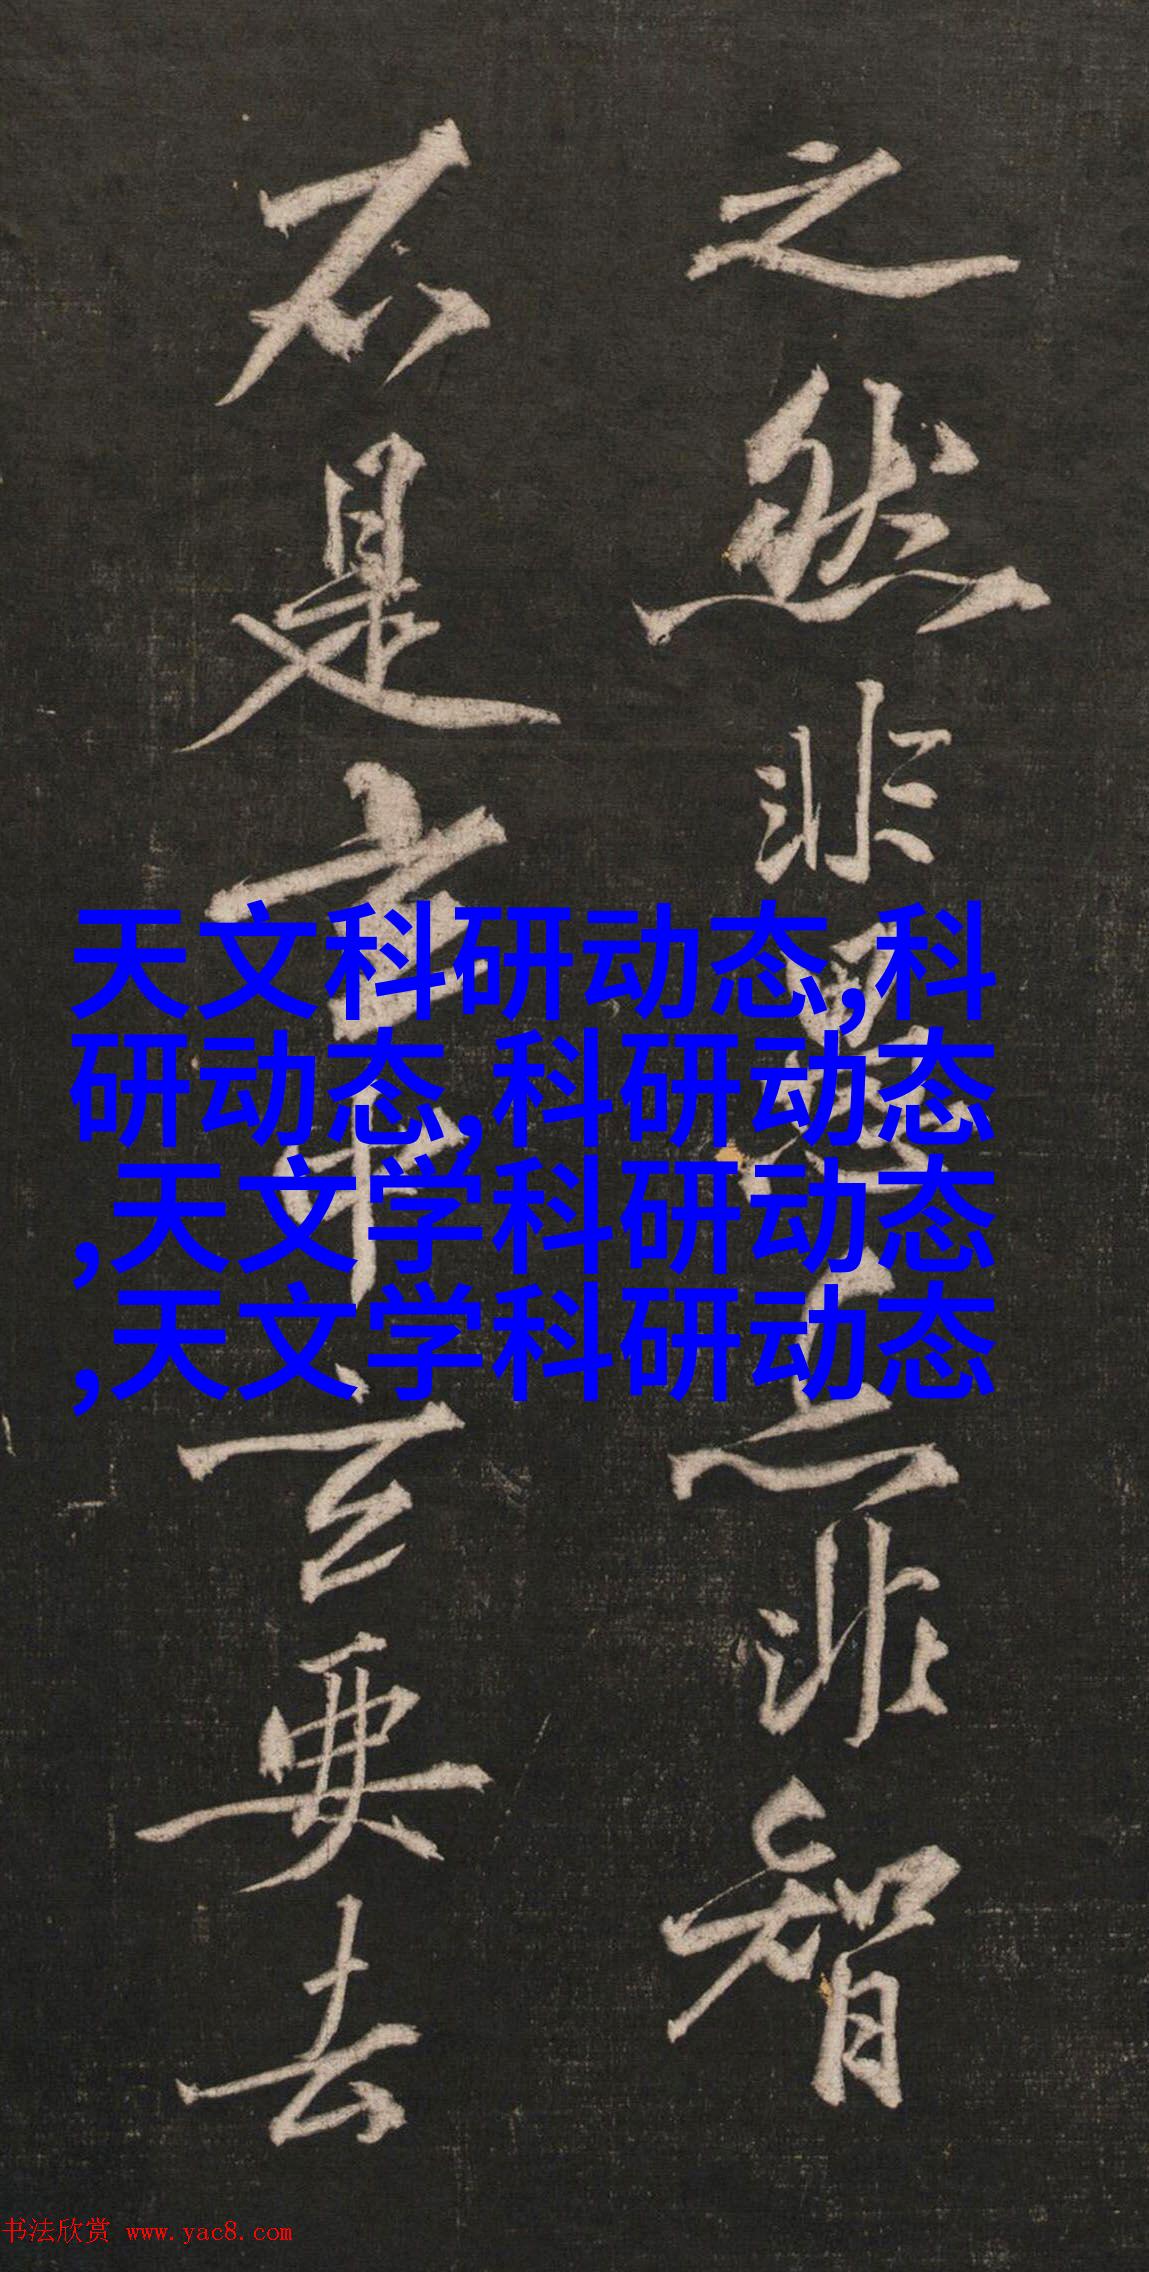 之然非愚亦非智
不是中要去
天文科研动态,科
研动态,科研动态
,天文学科研动态
,天文学科研动态
书法欣赏 www.yac8.com